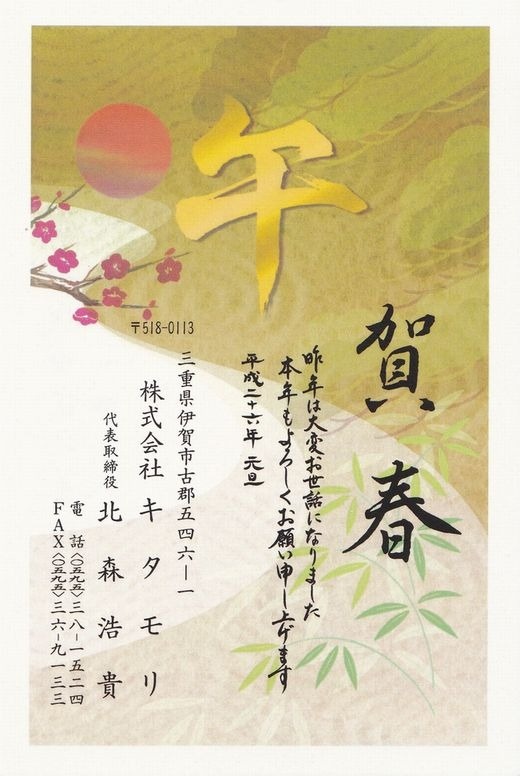 午
賀春
昨年は大変お世話になりました
本年もよろしくお願い申し上げます
平成二十六年 元旦
〒518-0113
三重県伊賀市古郡五四六ー一
株式会社キタモリ
代表取締役 北森浩貴
電話〈〇五九五〉三八ー一五二四
FAX〈〇五九五〉三六ー九一三三